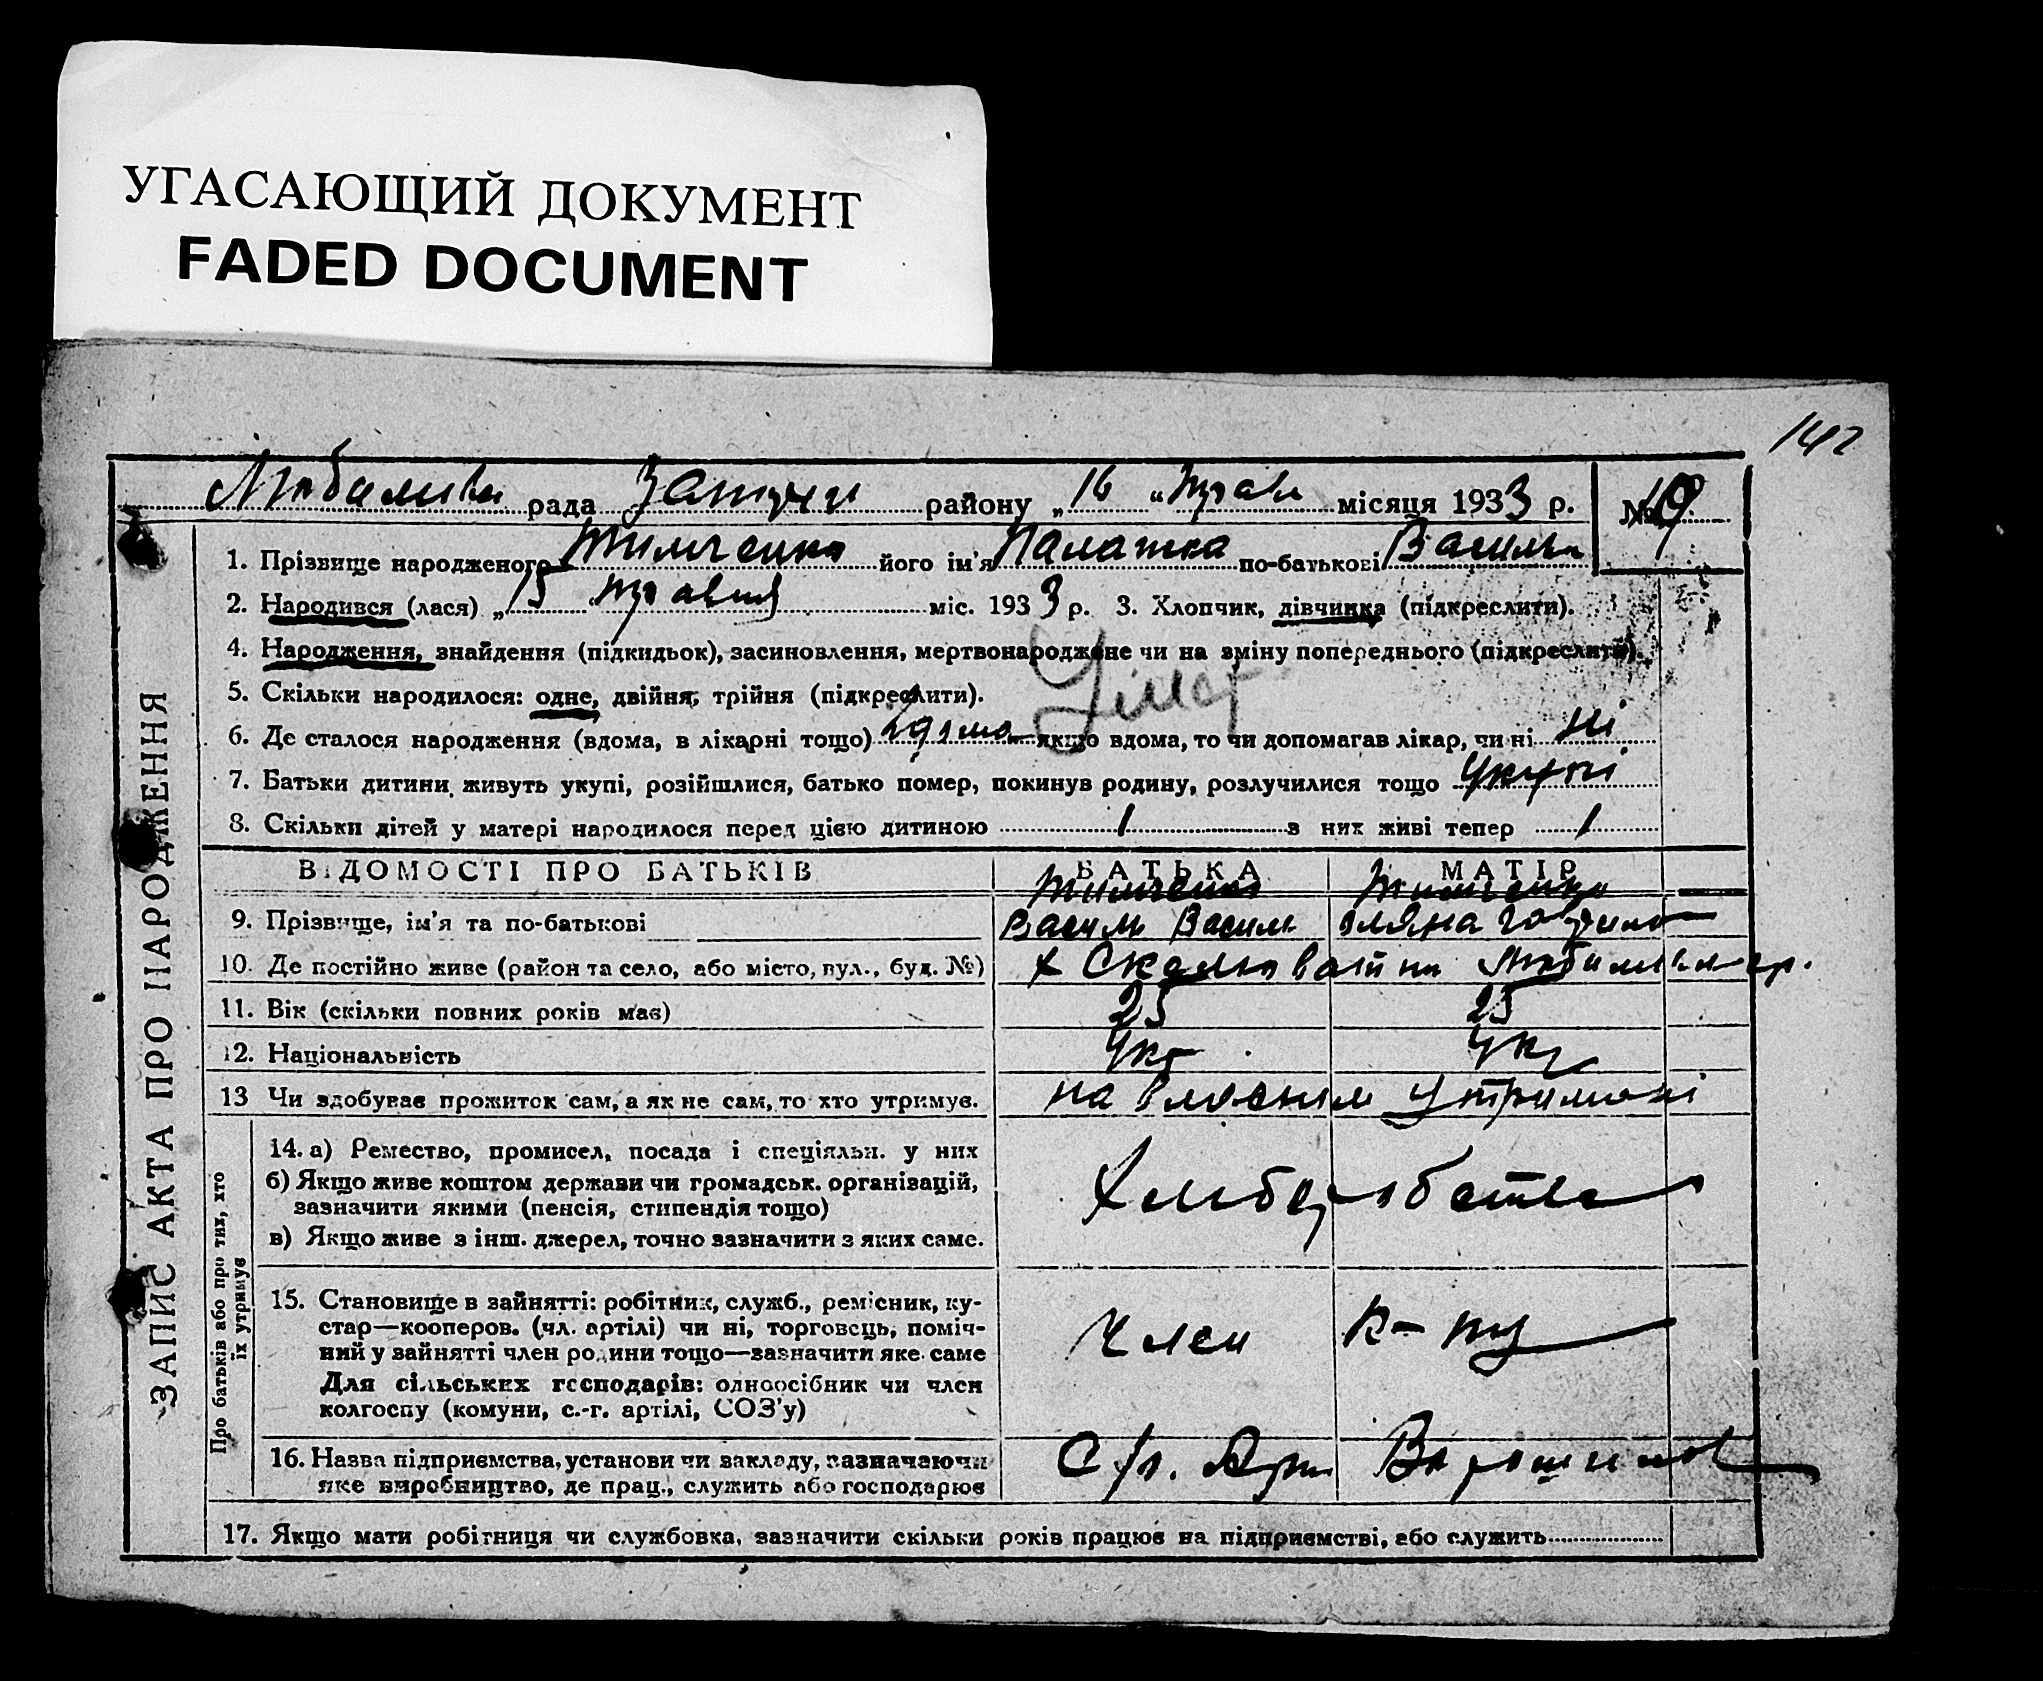 УГАСАЮЩИЙ ДОКУМЕНТ
FADED DOCUMENT
142
рада району „16 “ місяця 1933 р. № 19
1. Прізвище народженого Тимченко його ім'я Палажка по-батькові Василь
2. Народився (лася) „15 “ травня міс. 1933 р. 3. Хлопчик, дівчинка (підкреслити).
4. Народження, знайдення (підкидьок), засиновлення, мертвонароджене чи на зміну попереднього (підкреслити).
5. Скільки народилося: одне, двійня, трійня (підкреслити).
6. Де сталося народження (вдома, в лікарні тощо) вдома якщо вдома, то чи допомагав лікар, чи ні ні
7. Батьки дитини живуть укупі, розійшлися, батько помер, покинув родину, розлучилися тощо укупі
8. Скільки дітей у матері народилося перед цією дитиною 1 з них живі тепер 1
ЗАПИС АКТА ПРО НАРОДЖЕННЯ
ВІДОМОСТІ ПРО БАТЬКІВ БАТЬКА МАТІР
Тимченко Тимченко
9. Прізвище, ім'я та по-батькові Василь Василь
10. Де постійно живе (район та село, або місто, вул., буд. №)
11. Вік (скільки повних років має) 25 25
12. Національність Укр Укр
13 Чи здобуває прожиток сам, а як не сам, то хто утримує. на власнім утримані
Про батьків або про тих, хто
їх утримує
14. а) Ремество, промисел, посада і спеціяльн. у них
б) Якщо живе коштом держави чи громадськ. організацій,
зазначити якими (пенсія, стипендія тощо)
в) Якщо живе з інш. джерел, точно зазначити з яких саме.
15. Становище в зайнятті: робітник, служб., ремісник, ку-
стар—кооперов. (чл. артілі) чи ні, торговець, поміч-
ний у зайнятті член родини тощо—зазначити яке саме
Для сільських господарів: одноосібник чи член
колгоспу (комуни, с.-г. артілі, СОЗ'у)
Член к-пу
16. Назва підприємства, установи чи закладу, зазначаючи
яке виробництво, де прац., служить або господарює
17. Якщо мати робітниця чи службовка, зазначити скільки років працює на підприємстві, або служить